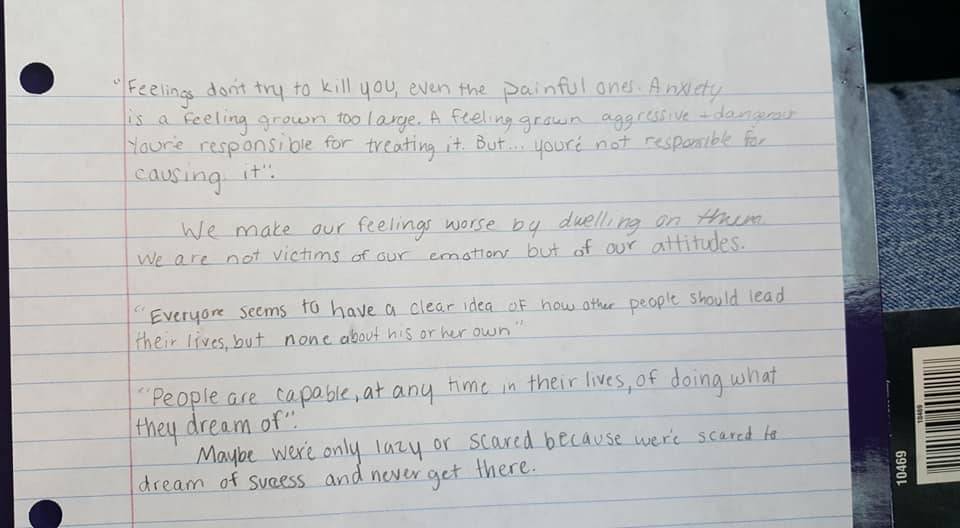 "Feelings don't try to kill you, even the painful ones. Anxiety
is a feeling grown too large. A feeling grown aggressive + dangerous
You're responsible for treating it. But... you're not responsible for
causing it".
We make our feelings worse by dwelling on them.
We are not victims of our emotions but of our attitudes.
"Everyone seems to have a clear idea of how other people should lead
their lives, but none about his or her own"
"People are capable, at any time in their lives, of doing what
they dream of".
Maybe we're only lazy or scared because we're scared to
dream of sucess and never get there.
10469
10469